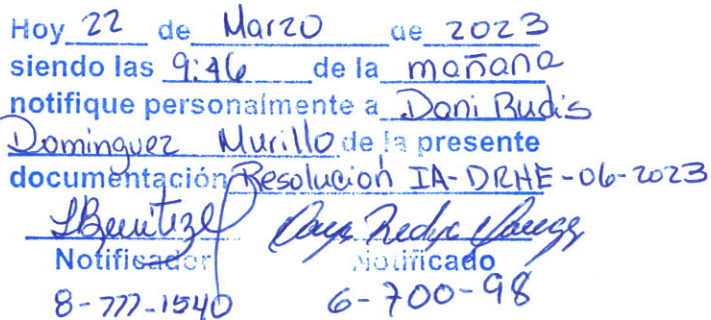 Hoy 22 de Marzo de 2023
siendo las 9:46 de la mañana
notifique personalmente a Dani Rudis
Dominguez Murillo de la presente
documentación Resolución IA-DRHE-06-2023
Notificador Notificado
8-777-1540 6-700-98